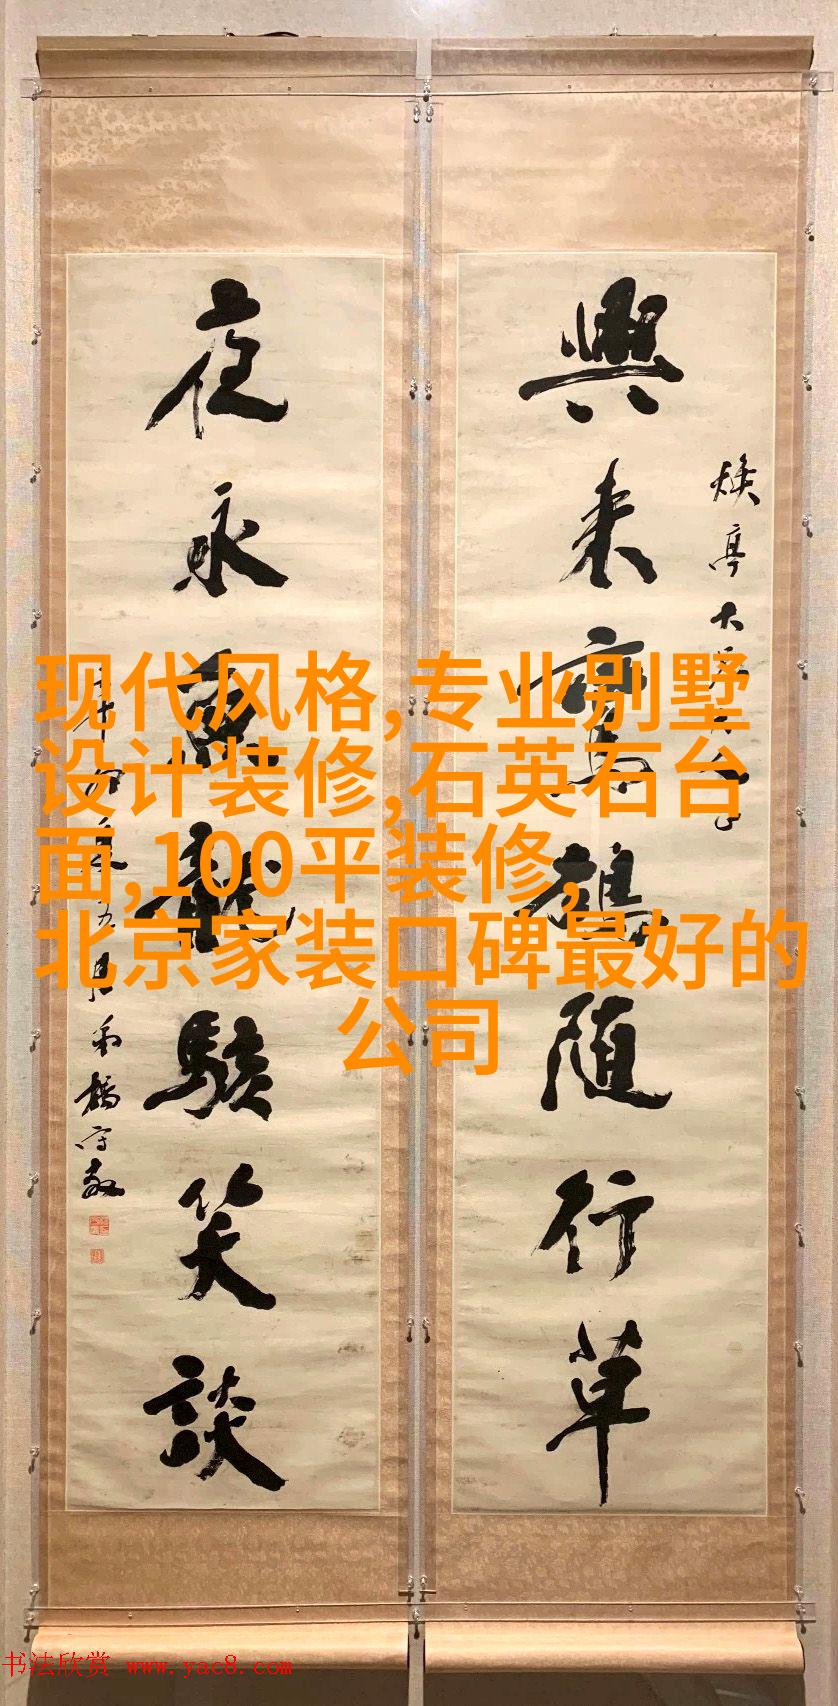 興来寫鶴隨行草
煥亭大
夜永 龍駭笑談
年 九月 楊守敬
现代风格,专业别墅
设计装修,石英石台
面,100平装修,
北京家装口碑最好的
公司
书法欣赏 www.yac8.com